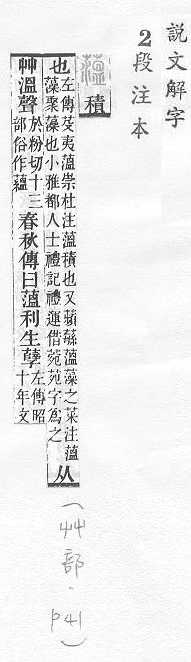 說文解字
2段注本
薀 積
也 左傳芟夷薀崇杜注薀積也又蘋蘩薀藻之菜注薀
藻聚藻也小雅都人士禮記禮運借菀苑字爲之 从
艸溫聲 於粉切十三
部俗作蘊 春秋傳曰薀利生孼 左傳昭
十年文
(艸部·P41)